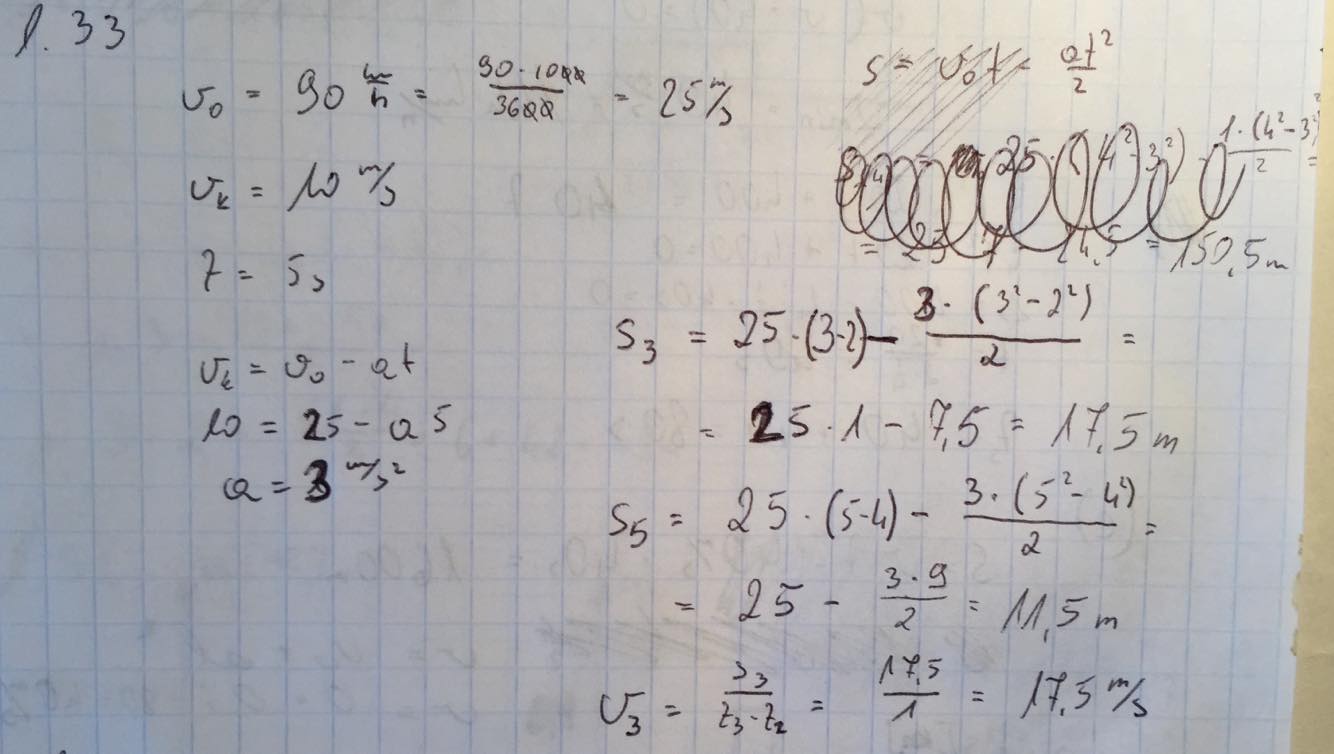 1.33
v₀ = 90 km/h = 90·1000/3600 = 25 m/s
vₖ = 10 m/s
t = 5s
vₖ = v₀ - at
10 = 25 - a5
a = 3 m/s²
s = v₀t - at²/2
1·(4²-3²)/2 =
= 25 · 4,5 = 150,5m
s₃ = 25·(3-2) - 3·(3²-2²)/2 =
= 25·1 - 7,5 = 17,5m
s₅ = 25·(5-4) - 3·(5²-4²)/2 =
= 25 - 3·9/2 = 11,5m
v₃ = s₃/t₃-t₂ = 17,5/1 = 17,5 m/s